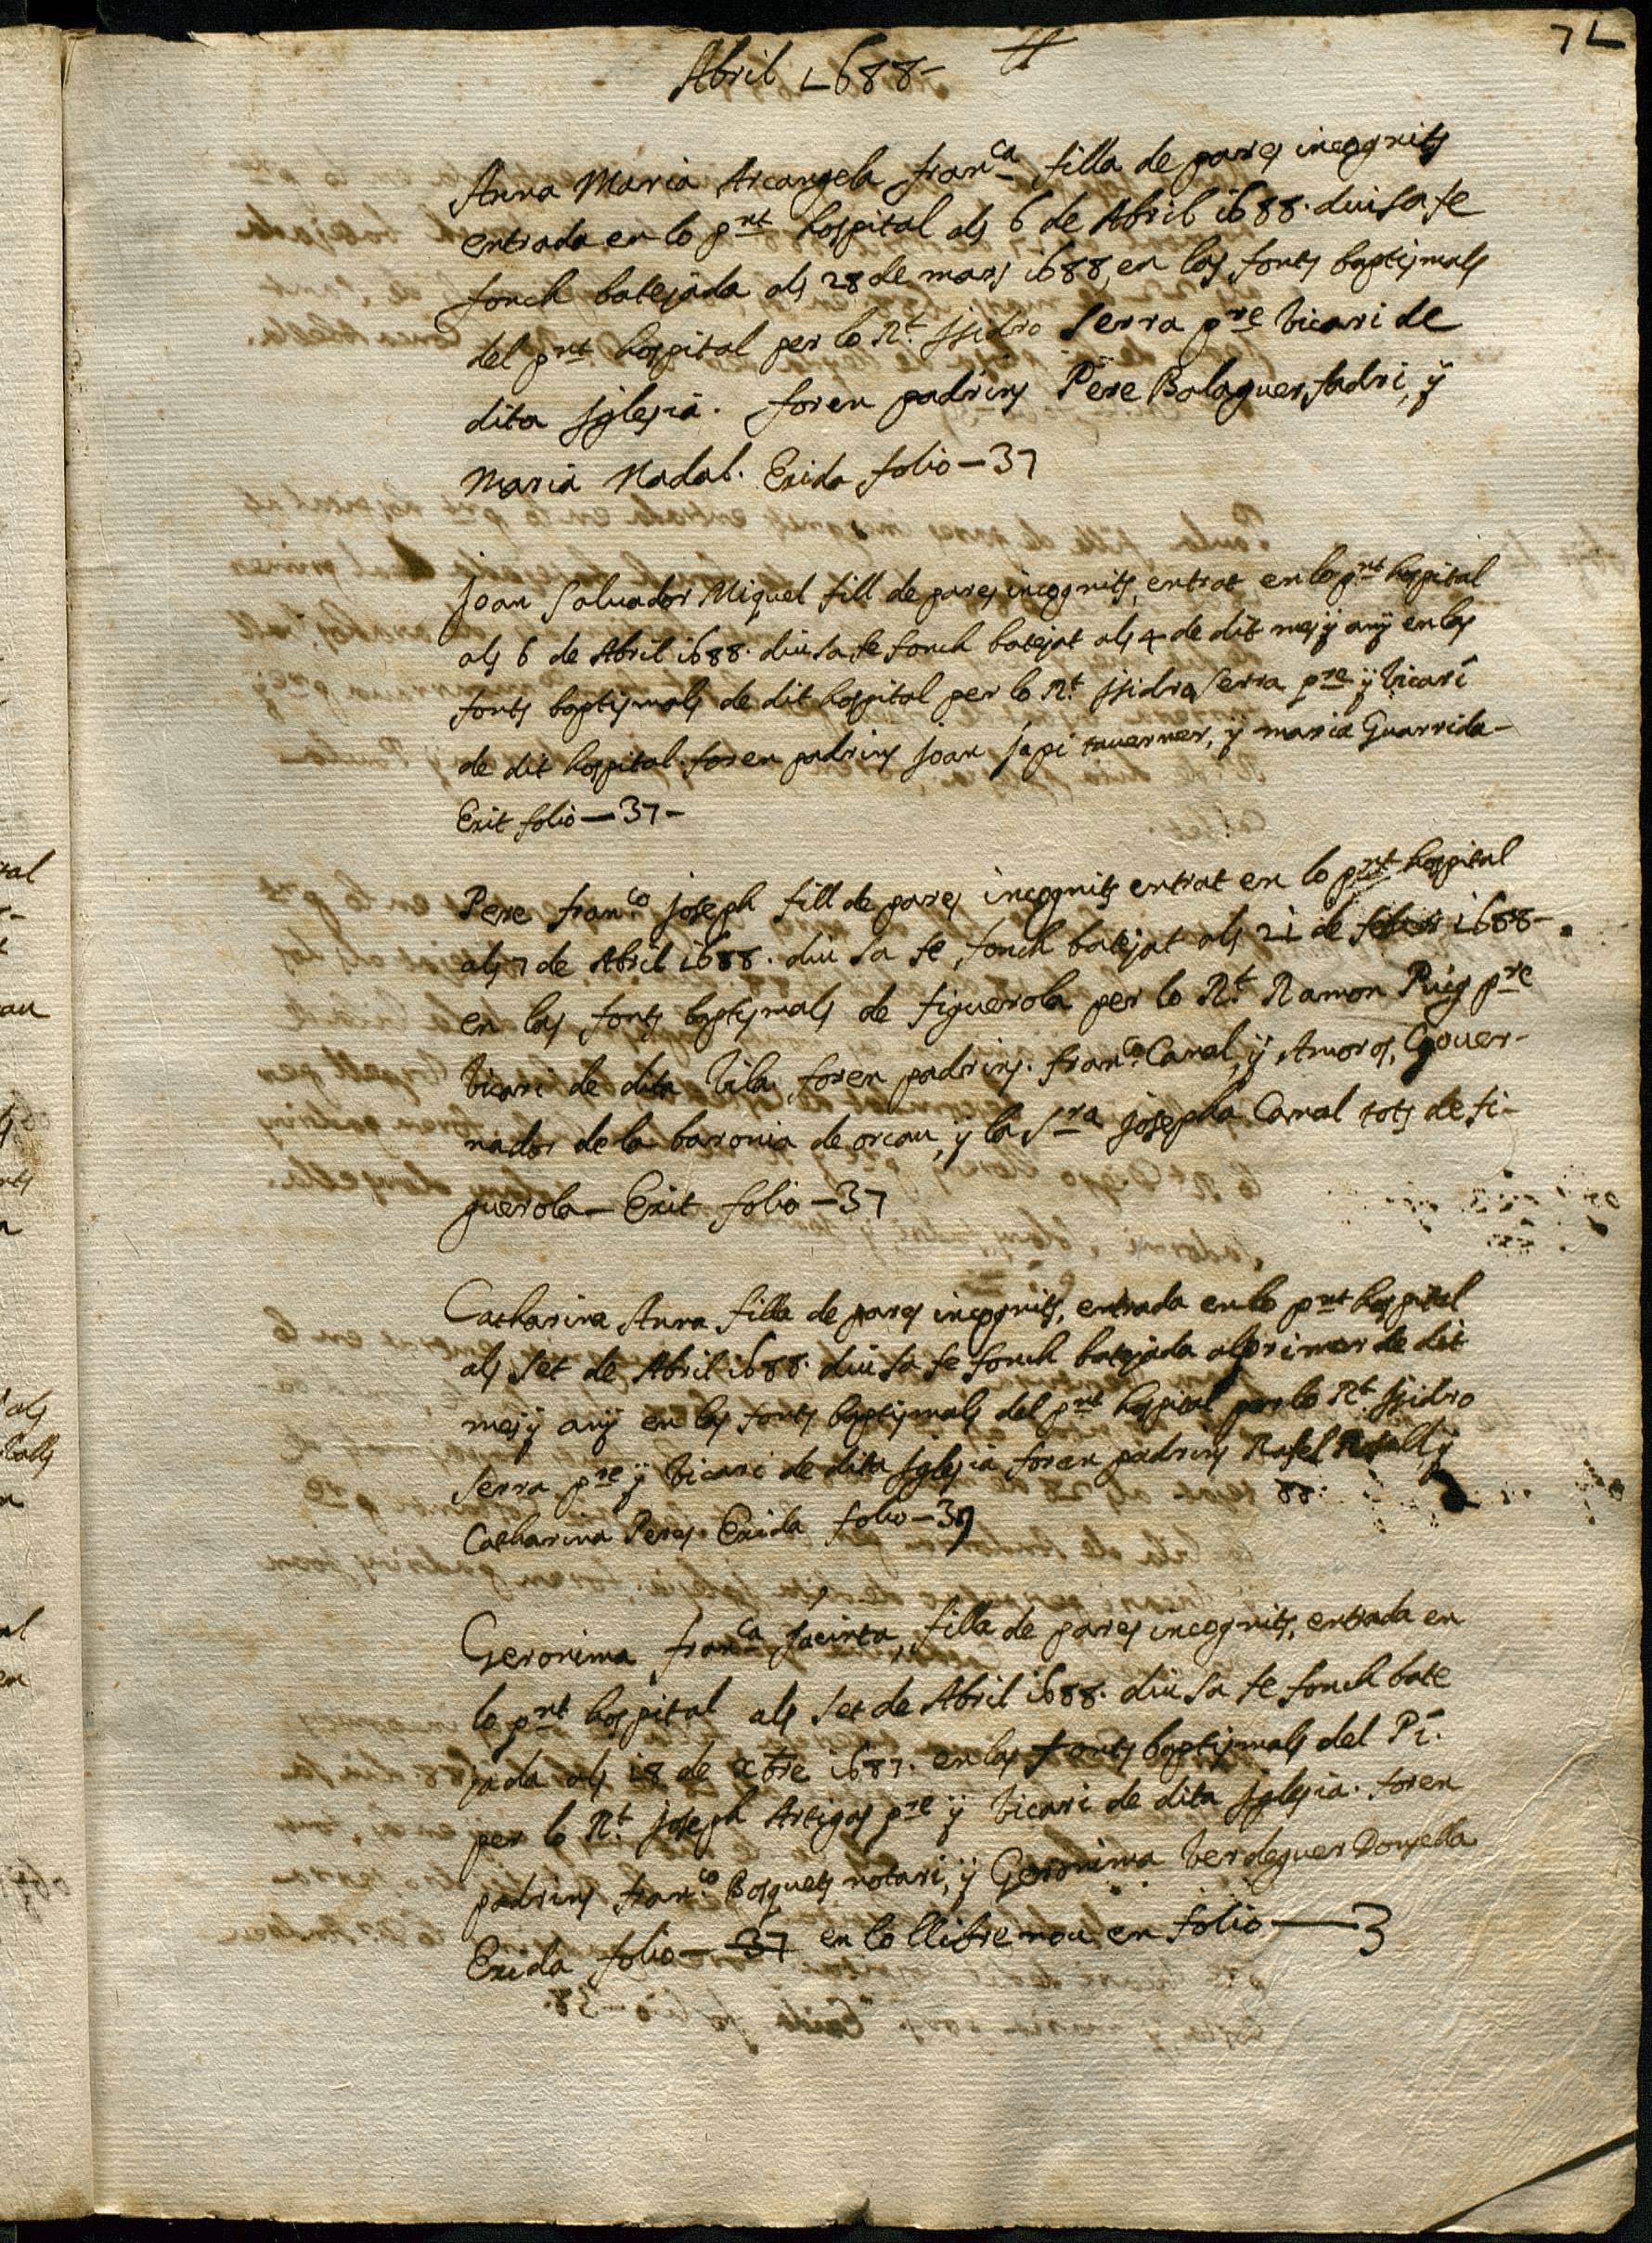 71
Abril 1688-
Anna Maria Arcangela fran^ca filla de pares incognits
entrada en lo p^nt hospital als 6 de Abril 1688. diu sa fe
fonch batejada als 28 de mars 1688, en las fonts baptismals
del p^nt hospital per lo R^t. Jsidro Serra p^re Vicari de
dita Jglesia. foren padrins Pere Balaguer fadri, ÿ
Maria Nadal. Exida folio - 37
Joan Salvador Miquel fill de pares incognits, entrat en lo p^nt hospital
als 6 de Abril 1688. diu sa fe fonch batejat als 4 de dit mes ÿ anÿ en las
fonts baptismals de dit hospital per lo R^t. Jsidro Serra p^re ÿ Vicari
de dit hospital. foren padrins Joan Japi tauerner, ÿ maria Guarrida -
Exit folio - 37 -
Pere fran^co Joseph fill de pares incognits entrat en lo p^nt hospital
als 7 de Abril 1688. diu sa fe, fonch batejat als 21 de febrer 1688 -
en las fonts baptismals de figuerola per lo R^t. Ramon Puig p^re
Vicari de dita Vila foren padrins. fran^co. Canal, ÿ Amoros, Gouer-
nador de la baronia de orcau, ÿ la S^ra Josepha Canal tots de fi-
guerola - Exit folio - 37
Catharina Anna filla de pares incognits, entrada en lo p^nt hospital
als set de Abril 1688. diu sa fe fonch batejada al primer de dit
mes ÿ anÿ en las fonts baptismals del p^nt hospital per lo R^t. Jsidro
Serra p^re ÿ Vicari de dita Jglesia foren padrins Rafel ÿ
Catharina Peres Exida folio - 37
Geronima fran^ca Jacinta, filla de pares incognits, entrada en
lo p^nt hospital als set de Abril 1688. diu sa fe fonch bate
jada als 18 de xbre 1687. en las fonts baptismals del Pi.
per lo R^t. Joseph Artigas p^re ÿ Vicari de dita Jglesia. foren
padrins fran^co. Bosquets notari, ÿ Geronima Verdeguer Donsella
Exida folio - 37 en lo llibre nou en folio - 3